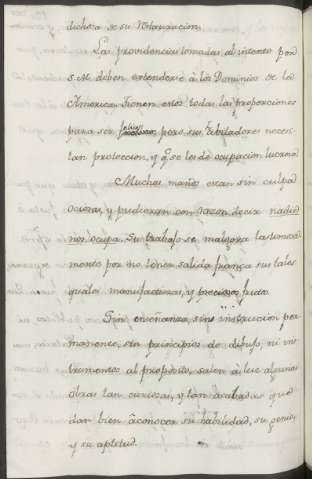 dichosa de su Vitoriacion.
Las providencias tomadas al intento por
S. M. deben extenderse à los Dominios de la
America. Tienen estos todas las proporciones
para ser felices, pero sus habitadores neces-
itan proteccion, y qe. se les dé ocupacion lucrosa
Muchas manos estan sin culpa
ociosas, y pudieran con razon decir nadie
nos ocupa. Su trabajo se malogra lastimosa
mente por no tener salida franca sus tales
quales manufacturas, y preciosos frutos.
Sin enseñanza, sin instruccion per
manente, sin principios de dibujo, ni ins
trumentos al proposito, salen à luz algunas
obras tan curiosas, y tan acabadas que
dan bien à conocer su habilidad, su genio,
y su aptitud.